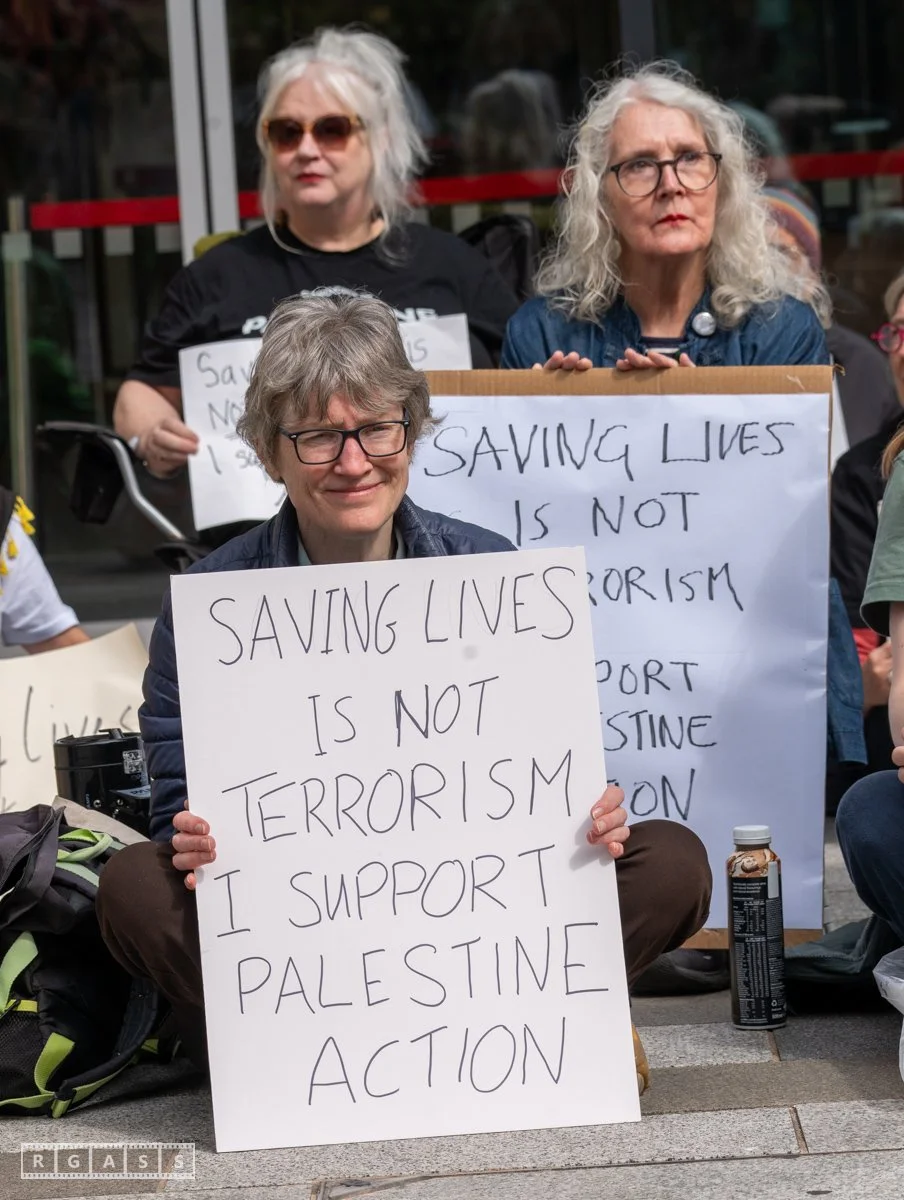 PALESTINE
Sav
IS
NO
I s
SAVING LIVES
IS NOT
RORISM
PORT
STINE
ION
SAVING LIVES
IS NOT
TERRORISM
I SUPPORT
PALESTINE
ACTION
lives
RGASS